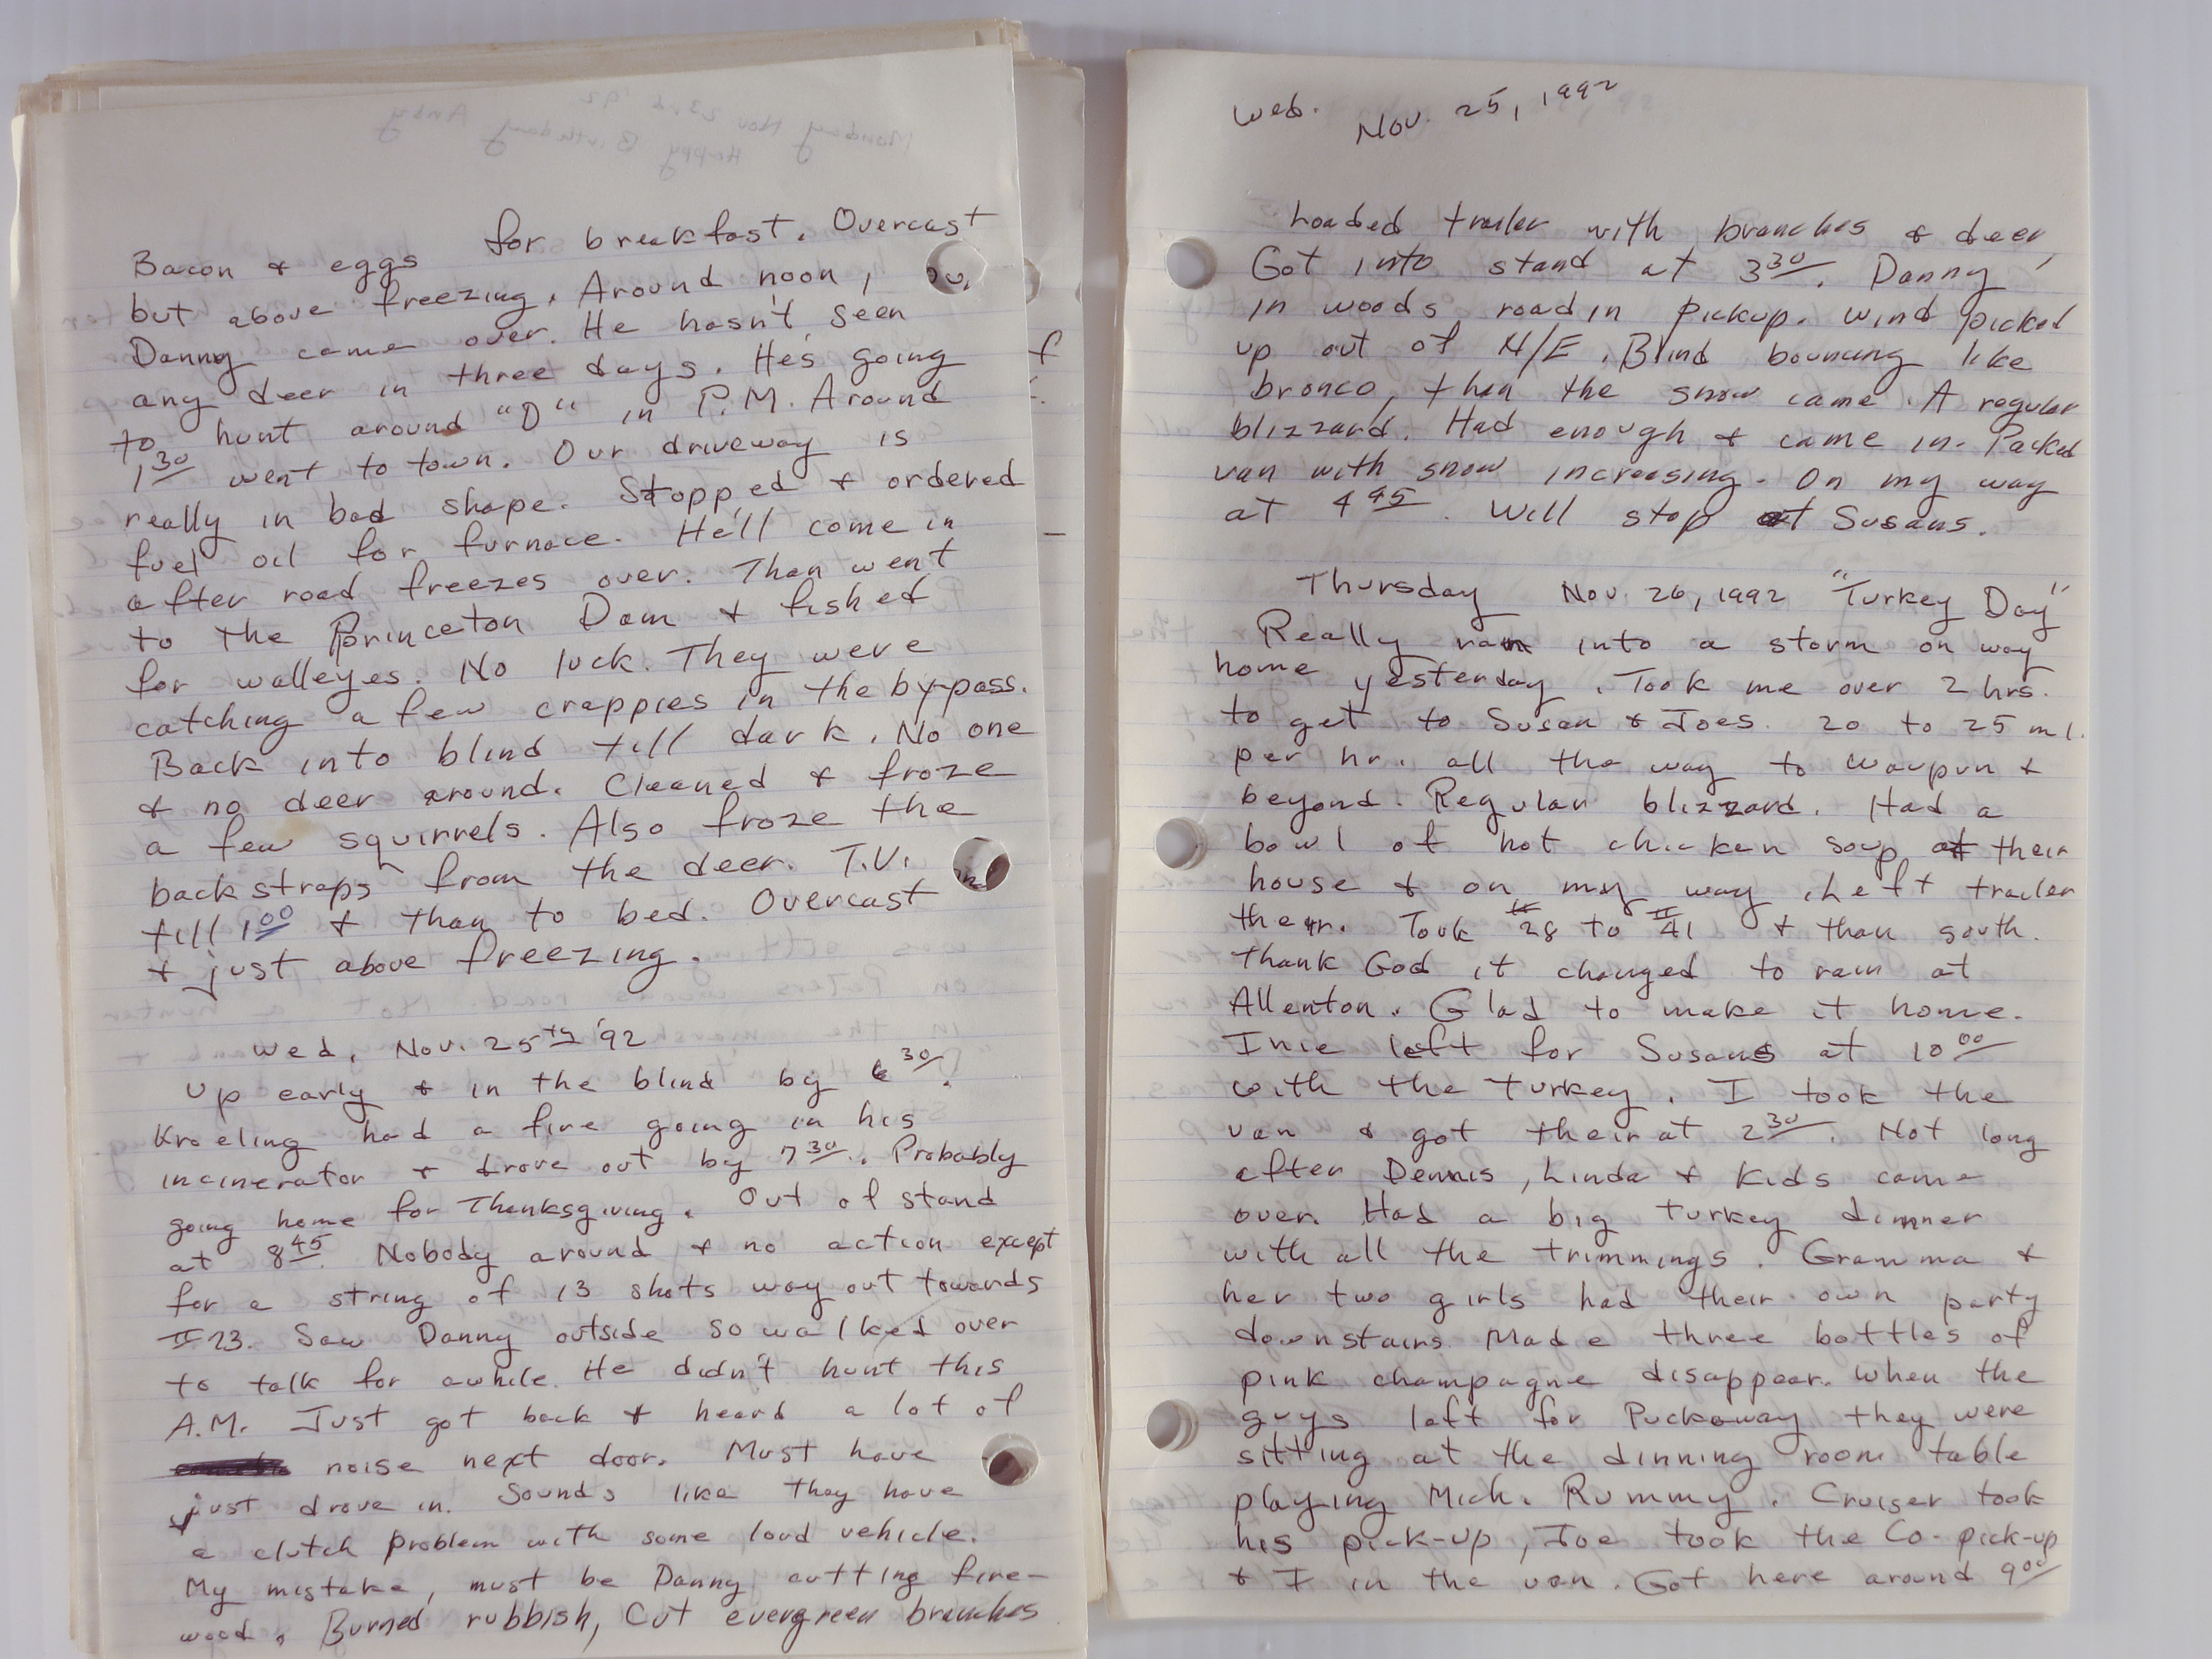 Bacon & eggs for breakfast. Overcast
but above freezing. Around noon,
Danny came over. He hasn't seen
any deer in three days. He's going
to hunt around "D" in P.M. Around
1 30 went to town. Our driveway is
really in bad shape. Stopped & ordered
fuel oil for furnace. He'll come in
after road freezes over. Than went
to the Princeton Dam & fished
for walleyes. No luck. They were
catching a few crappies in the by-pass.
Back into blind till dark. No one
& no deer around. Cleaned & froze
a few squirrels. Also froze the
back straps from the deer. T.V.
till 1 00 & than to bed. Overcast
& just above freezing.
Wed, Nov. 25th '92
up early & in the blind by 6 30.
Kroeling had a fire going in his
incinerator & drove out by 7 30. Probably
going home for Thanksgiving. Out of stand
at 8 45. Nobody around & no action except
for a string of 13 shots way out towards
#23. Saw Danny outside so walked over
to talk for awhile. He didn't hunt this
A.M. Just got back & heard a lot of
noise next door. Must have
just drove in. Sounds like they have
a clutch problem with some loud vehicle.
My mistake, must be Danny cutting fire-
wood. Burned rubbish, Cut evergreen branches
Wed. Nov. 25, 1992
Loaded trailer with branches & deer,
Got into stand at 3 30. Danny,
in woods road in pickup. Wind picked
up out of N/E. Blind bouncing like
bronco, than the snow came. A regular
blizzard. Had enough & came in. Packed
van with snow increasing. On my way
at 4 45. Will stop at Susans.
Thursday Nov. 26, 1992 "Turkey Day"
Really ran into a storm on way
home yesterday. Took me over 2 hrs.
to get to Susan & Joes. 20 to 25 mi.
per hr. all the way to Waupun &
beyond. Regular blizzard. Had a
bowl of hot chicken soup at their
house & on my way. Left trailer
their. Took #28 to #41 & than south.
Thank God it changed to rain at
Allenton. Glad to make it home.
Inie left for Susans at 10 00
with the turkey. I took the
van & got their at 2 30. Not long
after Dennis, Linda & Kids came
over. Had a big turkey dinner
with all the trimmings. Gramma &
her two girls had their own party
downstairs. Made three bottles of
pink champagne disappear. When the
guys left for Puckaway they were
sitting at the dinning room table
playing Mich. Rummy. Cruiser took
his pick-up, Joe took the Co-pick-up
& I in the van. Got here around 9 00